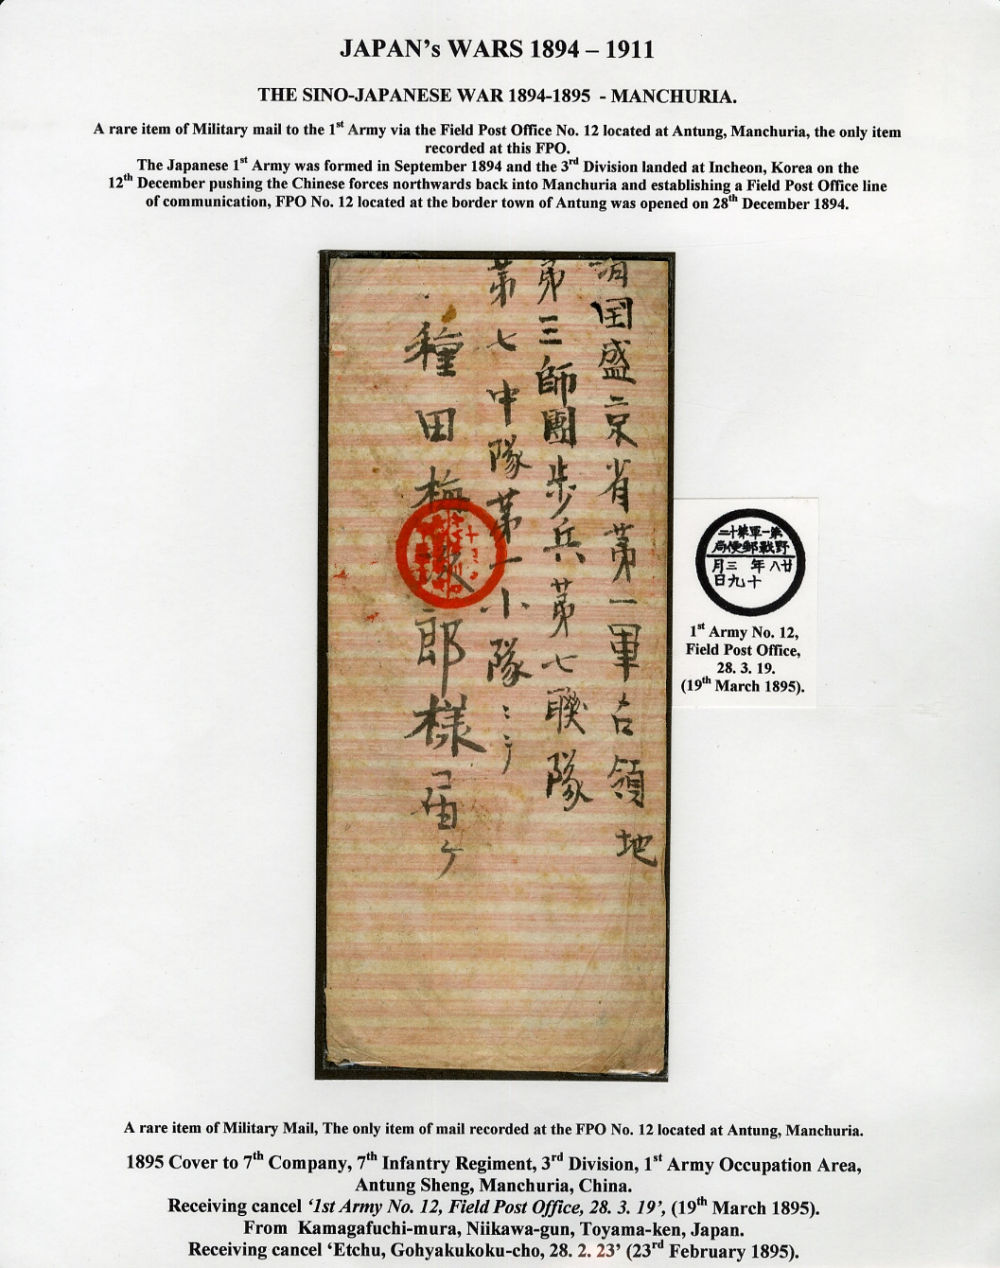 JAPAN's WARS 1894 – 1911
THE SINO-JAPANESE WAR 1894-1895 - MANCHURIA.
A rare item of Military mail to the 1st Army via the Field Post Office No. 12 located at Antung, Manchuria, the only item
recorded at this FPO.
The Japanese 1st Army was formed in September 1894 and the 3rd Division landed at Incheon, Korea on the
12th December pushing the Chinese forces northwards back into Manchuria and establishing a Field Post Office line
of communication, FPO No. 12 located at the border town of Antung was opened on 28th December 1894.
清国盛京省第一軍占領地
第三師團歩兵第七聯隊
第七中隊第一小隊
種田梅次郎様届ケ
第一軍第十二
野戰郵便局
廿八年三月
十九日
1st Army No. 12,
Field Post Office,
28. 3. 19.
(19th March 1895).
A rare item of Military Mail, The only item of mail recorded at the FPO No. 12 located at Antung, Manchuria.
1895 Cover to 7th Company, 7th Infantry Regiment, 3rd Division, 1st Army Occupation Area,
Antung Sheng, Manchuria, China.
Receiving cancel ‘1st Army No. 12, Field Post Office, 28. 3. 19’, (19th March 1895).
From Kamagafuchi-mura, Niikawa-gun, Toyama-ken, Japan.
Receiving cancel ‘Etchu, Gohyakukoku-cho, 28. 2. 23’ (23rd February 1895).